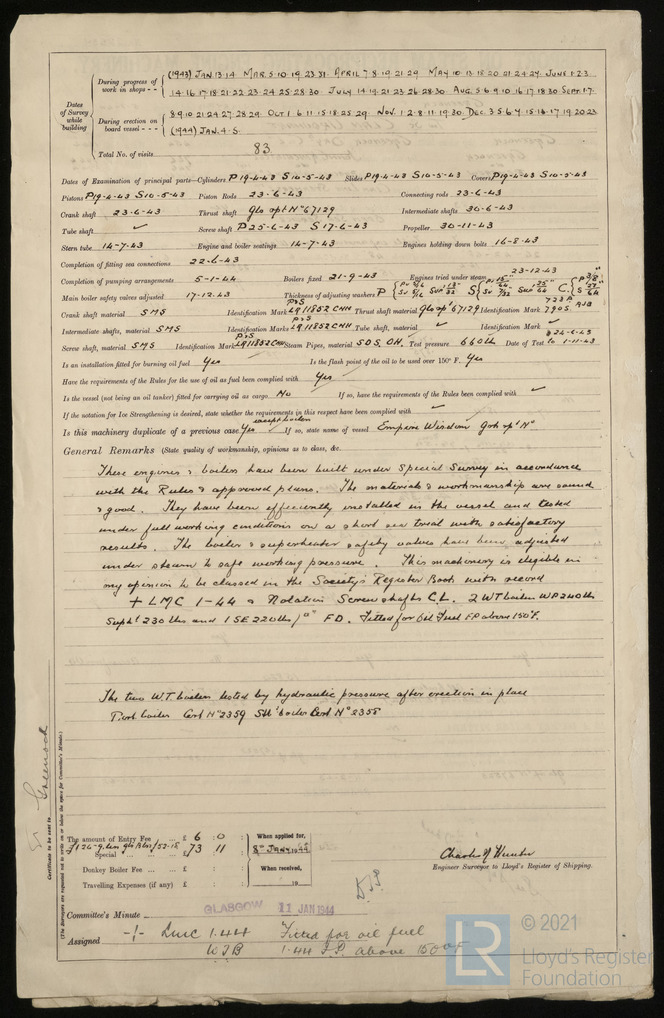 Dates of Survey while building
During progress of work in shops - -
(1943) JAN.13.14 MAR.5.10.19.23.31. APRIL 7.8.19.21.29 MAY 10.13.18.20.21.24.27. JUNE 1.2.3
14.16.17.18.21.22.23.24.25.28.30 JULY 14.19.21.23.26.28.30 AUG.5.6.9.10.16.17.18.30 SEPT.1.7.
During erection on board vessel - - -
8.9.10.21.24.27.28.29. OCT 1.6.11.15.18.25.29. NOV.1.2.8.11.19.30. DEC 3.5.6.7.15.16.17.19.20.23
(1944) JAN.4.5.
Total No. of visits 83
Dates of Examination of principal parts—Cylinders P19-4-43 S10-5-43 Slides P19-4-43 S10-5-43 Covers P19-4-43 S10-5-43
Pistons P19-4-43 S10-5-43 Piston Rods 23-6-43 Connecting rods 23-6-43
Crank shaft 23-6-43 Thrust shaft Gls rpt No 67129 Intermediate shafts 30-6-43
Tube shaft ✓ Screw shaft P25-6-43 S17-6-43 Propeller 30-11-43
Stern tube 14-7-43 Engine and boiler seatings 14-7-43 Engines holding down bolts 16-8-43
Completion of fitting sea connections 22-6-43
Completion of pumping arrangements 5-1-44 Boilers fixed 21-9-43 Engines tried under steam 23-12-43
Main boiler safety valves adjusted 17-12-43 Thickness of adjusting washers
Crank shaft material SMS Identification Mark P&S LR11852 CHH Thrust shaft material Gls rpt 67129 Identification Mark 7905 AJB
Intermediate shafts, material SMS Identification Marks P&S LR11852 CHH Tube shaft, material ✓ Identification Mark ✓
Screw shaft, material SMS Identification Mark P&S LR11852 CHH Steam Pipes, material SDS. OH. Test pressure 660lb Date of Test 24-6-43 to 1-11-43
Is an installation fitted for burning oil fuel Yes Is the flash point of the oil to be used over 150° F. Yes
Have the requirements of the Rules for the use of oil as fuel been complied with Yes
Is the vessel (not being an oil tanker) fitted for carrying oil as cargo No If so, have the requirements of the Rules been complied with ✓
If the notation for Ice Strengthening is desired, state whether the requirements in this respect have been complied with ✓
Is this machinery duplicate of a previous case Yes except boilers If so, state name of vessel Empire Wisdom Gek rpt No
General Remarks (State quality of workmanship, opinions as to class, &c.
These engines & boilers have been built under Special Survey in accordance
with the Rules & approved plans. The materials & workmanship are sound
& good. They have been efficiently installed in the vessel and tested
under full working conditions on a short sea trial with satisfactory
results. The boiler & superheater safety valves have been adjusted
under steam to safe working pressure. This machinery is eligible in
my opinion to be classed in the Society's Register Book with record
+ LMC 1-44 & Notation Screwshafts C.L. 2 WT boilers WP 240 lb
Supht 230 lbs and 1 SE 220lb/□" FD. Fitted for Oil Fuel FP above 150°F.
The two W.T. boilers tested by hydraulic pressure after erection in place
Port boiler Cert No 2359 Stb'd boiler Cert No 2358
Certificate to be sent to Greenock
(The Surveyors are requested not to write on or below the space for Committee's Minute.)
The amount of Entry Fee ... £ 6 : 0 :
Special ... £ 73 : 11 :
Donkey Boiler Fee ... £ : :
Travelling Expenses (if any) £ : :
When applied for, 8th JANY 1944
When received, 19
Charles N Hunter
Engineer Surveyor to Lloyd's Register of Shipping.
GLASGOW 11 JAN 1944
Committee's Minute
Assigned + LMC 1.44 Fitted for oil fuel
WTB 1.44 F.P. above 150°F
© 2021
LR
Lloyd's Register
Foundation